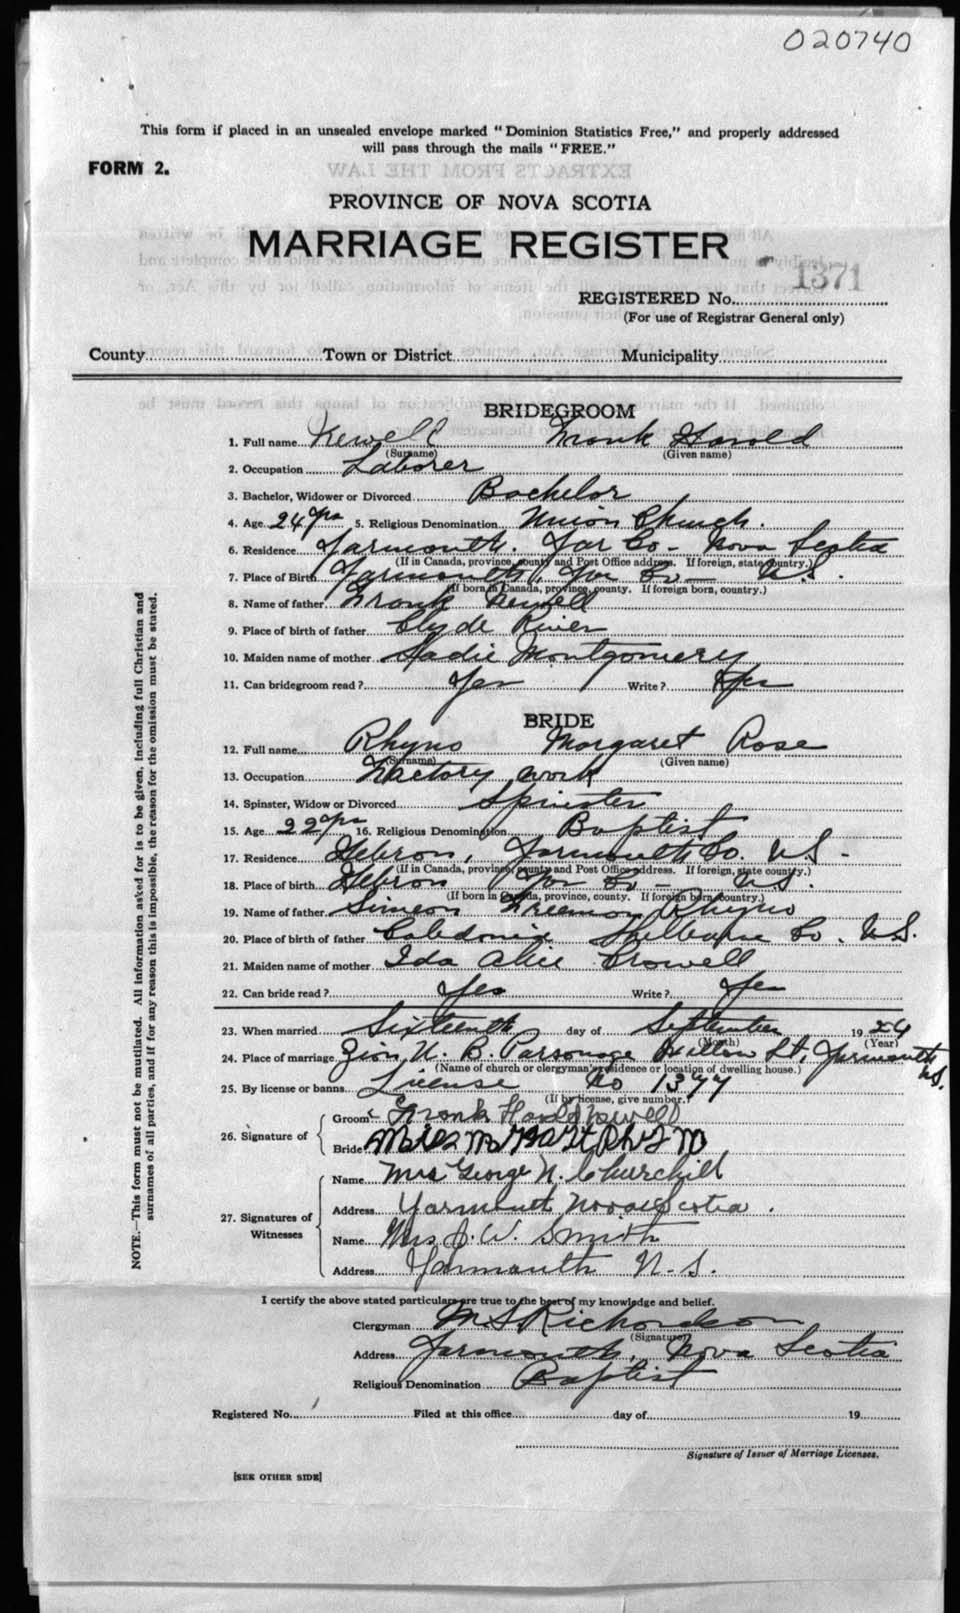 020740
This form if placed in an unsealed envelope marked "Dominion Statistics Free," and properly addressed
will pass through the mails "FREE."
FORM 2.
PROVINCE OF NOVA SCOTIA
MARRIAGE REGISTER
1371
REGISTERED No.
(For use of Registrar General only)
County Town or District Municipality
BRIDEGROOM
1. Full name Newell Frank Harold
(Surname) (Given name)
2. Occupation Laborer
3. Bachelor, Widower or Divorced Bachelor
4. Age 24 yrs 5. Religious Denomination Union Church.
6. Residence Yarmouth. Yar Co - Nova Scotia
(If in Canada, province, county and Post Office address. If foreign, state country.)
7. Place of Birth Yarmouth, Yar Co - N.S.
(If born in Canada, province, county. If foreign born, country.)
8. Name of father Frank Newell
9. Place of birth of father Clyde River
10. Maiden name of mother Sadie Montgomery
11. Can bridegroom read? Yes Write? Yes
BRIDE
12. Full name Rhyno Margaret Rose
(Surname) (Given name)
13. Occupation Factory work
14. Spinster, Widow or Divorced Spinster
15. Age 22 yrs 16. Religious Denomination Baptist
17. Residence Hebron, Yarmouth Co. N.S.
(If in Canada, province, county and Post Office address. If foreign, state country.)
18. Place of birth Hebron Yar Co - N.S.
(If born in Canada, province, county. If foreign born, country.)
19. Name of father Simeon Freeman Rhyno
20. Place of birth of father Caledonia Shelburne Co. N.S.
21. Maiden name of mother Ida Alice Crowell
22. Can bride read? Yes Write? Yes
23. When married Sixteenth day of September 1924
(Month) (Year)
24. Place of marriage Zion U. B. Parsonage Willow St, Yarmouth N.S.
(Name of church or clergyman's residence or location of dwelling house.)
25. By license or banns License No 1377
(If by license, give number.)
26. Signature of Groom Frank Harold Newell
Bride Miss Margart Rhyno
27. Signatures of Witnesses
Name Mrs George N. Churchill
Address Yarmouth Nova Scotia.
Name Mrs J. W. Smith
Address Yarmouth N.S.
I certify the above stated particulars are true to the best of my knowledge and belief.
Clergyman M S Richardson
(Signature)
Address Yarmouth, Nova Scotia
Religious Denomination Baptist
Registered No. Filed at this office day of 19
Signature of Issuer of Marriage Licenses.
[SEE OTHER SIDE]
NOTE.—This form must not be mutilated. All information asked for is to be given, including full Christian and
surnames of all parties, and if for any reason this is impossible, the reason for the omission must be stated.